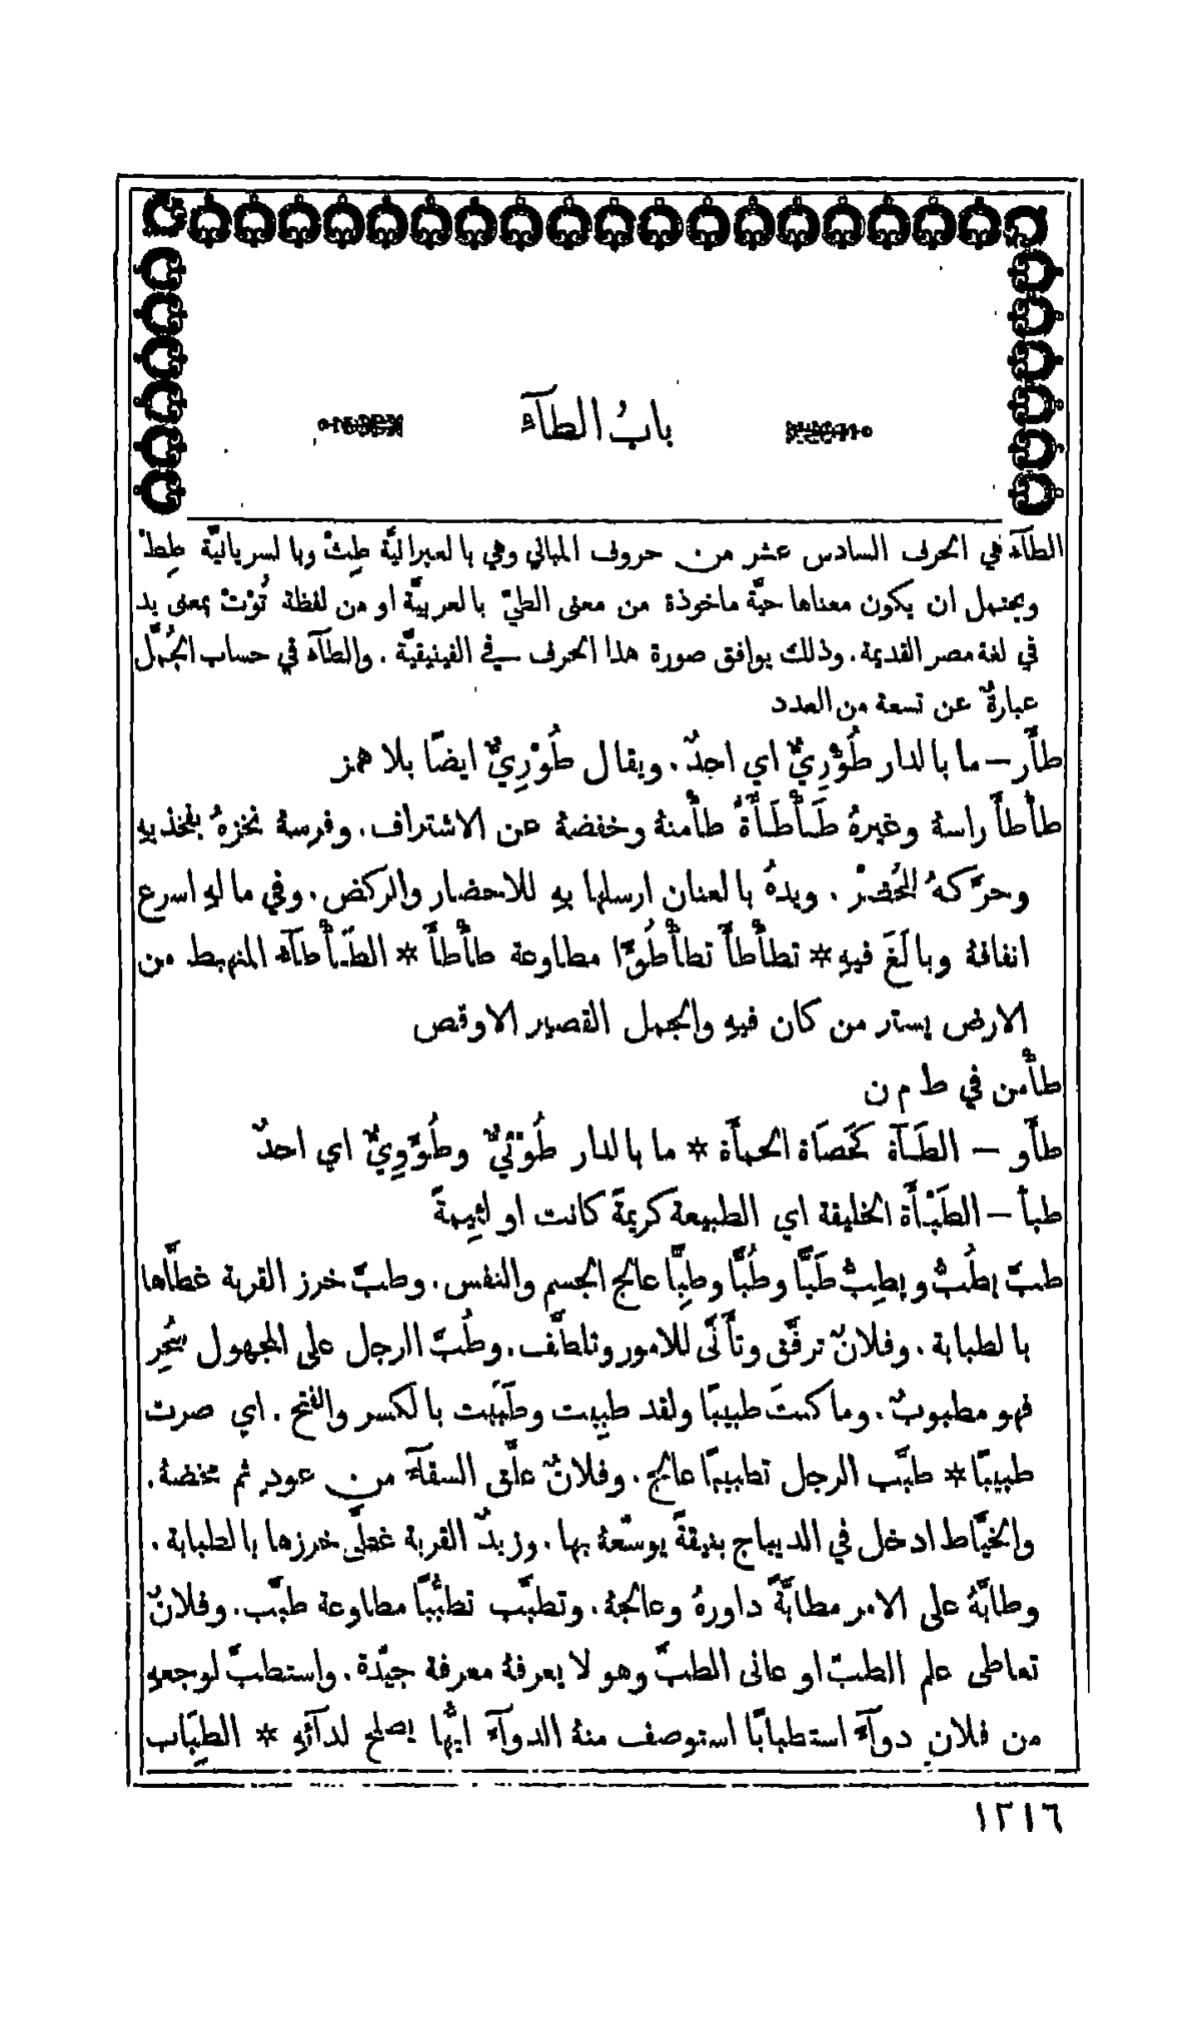 بابُ الطآء
الطآء هي الحرف السادس عشر من حروف المباني وهي بالعبرانيَّة طِثْ وبالسريانيَّة طِطْ
ويحتمل ان يكون معناها حيَّة ماخوذة من معنى الطيّ بالعربيَّة او من لفظة تُوْتْ بمعنى يد
في لغة مصر القديمة. وذلك يوافق صورة هذا الحرف في الفينيقيَّة. والطآء في حساب الجُمَّل
عبارةٌ عن تسعة من العدد
طأَّر — ما بالدار طُوْرِيٌّ اي احدٌ. ويقال طُوْرِيٌّ ايضًا بلا همز
طأْطأَ راسهُ وغيرهُ طَأْطَأَةً طأْمنهُ وخفضهُ عن الاشتراف. وفرسهُ نخزهُ بفخذيهِ
وحرَّكهُ للحُضْرْ. ويدهُ بالعنان ارسلها بهِ للاحضار والركض. وفي مالهِ اسرع
انفاقهُ وبالَغَ فيهِ * تطأْطأَ تطأْطُؤًا مطاوعة طأْطأَ * الطَأْطآء المنهبط من
الارض يستر من كان فيهِ والجمل القصير الاوقص
طأْمن في ط م ن
طأَو — الطَآة كَحَصَاة الحمأَة * ما بالدار طُوْئِيٌّ وطُوَّوِيٌّ اي احدٌ
طبأ — الطَبْأَة الخليقة اي الطبيعة كريمةً كانت او لئيمةً
طبَّ يطُبُّ ويطِبُّ طَبًّا وطُبًّا وطِبًّا عالج الجسم والنفس. وطبَّ خرز القربة غطَّاها
بالطبابة. وفلانٌ ترفَّق وتأَنَّى للامور وتلطَّف. وطُبَّ الرجل على المجهول سُحِر
فهو مطبوبٌ. وما كنتَ طبيبًا ولقد طبِبت وطَبَبت بالكسر والفتح. اي صرت
طبيبًا * طبَّب الرجل تطبيبًا عالج. وفلانٌ علَّق السقآء من عودٍ ثم مخضهُ.
والخيَّاط ادخل في الديباج بنيقةً يوسّعهُ بها. وزيدٌ القربة غطَّى خرزها بالطبابة.
وطابَّهُ على الامر مطابَّةً داورهُ وعالجهُ. وتطبَّب تطبُّبًا مطاوعة طبَّب. وفلانٌ
تعاطى علم الطبّ او عانى الطبَّ وهو لا يعرفهُ معرفة جيّدة. واستطبَّ لوجعهِ
من فلانٍ دوآءً استطبابًا استوصف منهُ الدوآءَ ايُّها يصلح لدآئهِ * الطِبَاب
١٢١٦